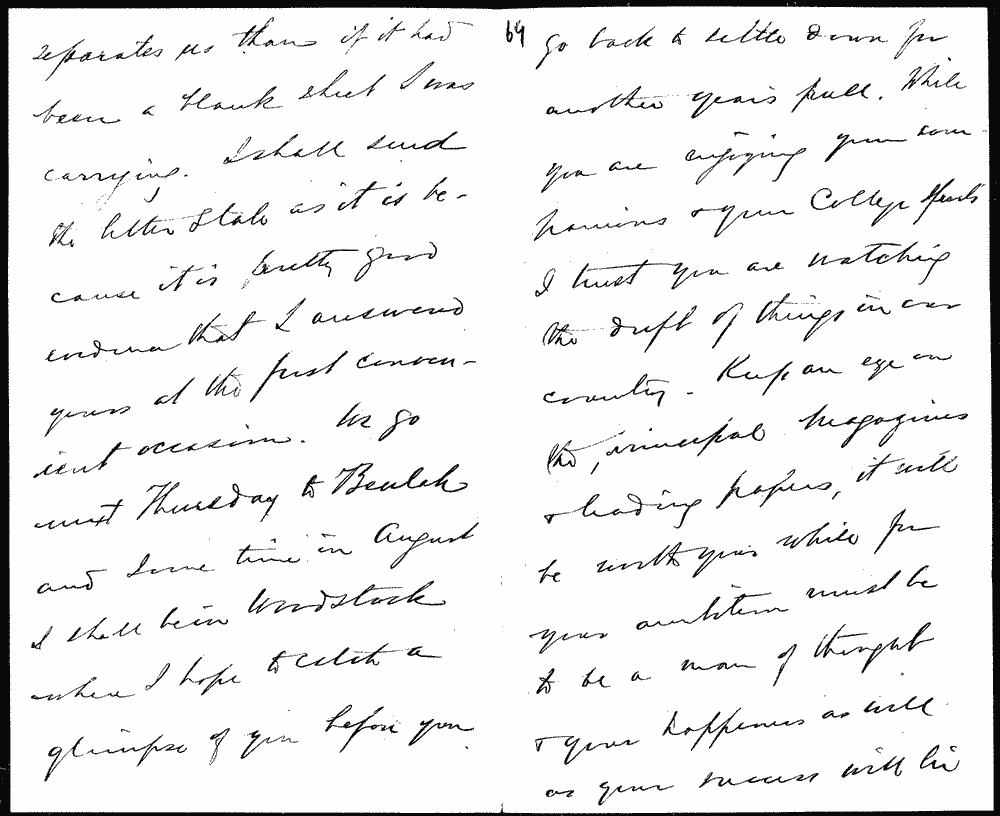 separates us than if it had
been a blank sheet I was
carrying. I shall send
the letter stale as it is be-
cause it is pretty good
evidence that I answered
yours at the first conven-
ient occasion. We go
next Thursday to Beulah
and some time in August
I shall be in Woodstock
where I hope to catch a
glimpse of you before you
64
go back to settle down for
another year's pull. While
you are enjoying your com-
panions & your College sports
I trust you are watching
the drift of things in our
country. Keep an eye on
the principal Magazines
& leading papers, it will
be worth your while for
your ambition must be
to be a man of thought
& your happiness as well
as your success will lie